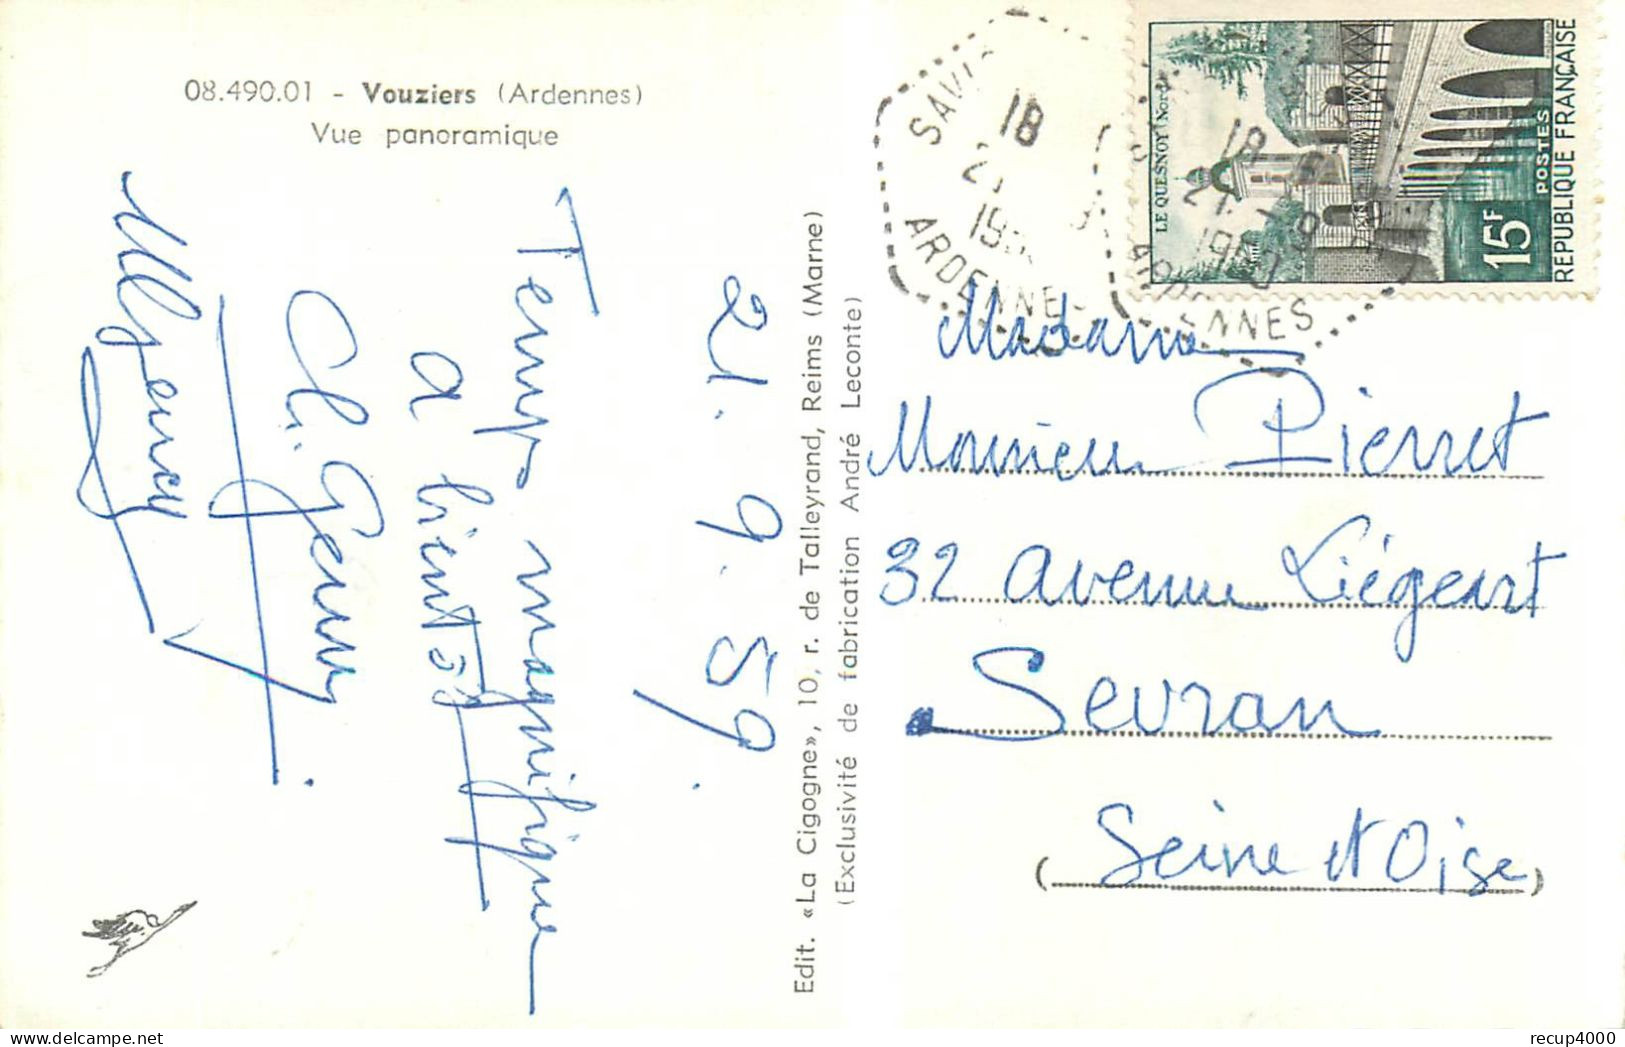 08.490.01 - Vouziers (Ardennes)
Vue panoramique
21. 9. 59.
Temps magnifique
a bientôt
Edit. «La Cigogne», 10, r. de Talleyrand, Reims (Marne)
(Exclusivité de fabrication André Leconte)
18
ARDENNES
18
21 - 9
ARDENNES
LE QUESNOY (Nord)
15F
POSTES
REPUBLIQUE FRANÇAISE
Madame
Monsieur Pierret
32 avenue Liégeart
Sevran
(Seine et Oise)
recup4000